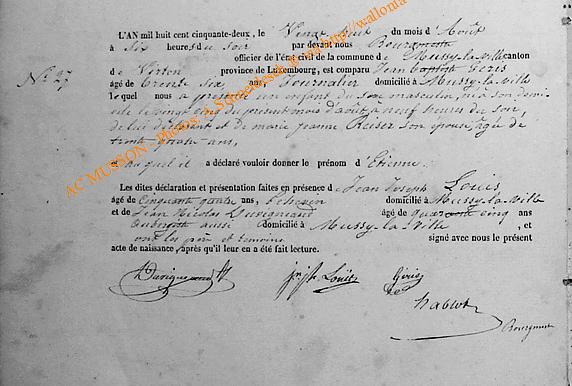 L'AN mil huit cent cinquante-deux, le Vingt huit du mois d'Août
à Six heures du soir par devant nous Bourgmestre
officier de l'état civil de la commune de Mussy-la-Ville canton
de Virton province de Luxembourg, est comparu Jean
âgé de trente six ans, Journalier domicilié à Mussy-la-Ville
Lequel nous a présenté un enfant du sexe masculin, né à son domi
cile le vingt cinq du présent mois d'août à neuf heures du soir,
de lui déclarant et de marie jeanne Reiser son épouse, âgée
de trente ans,
et auquel il a déclaré vouloir donner le prénom d'Etienne.
Les dites déclaration et présentation faites en présence de Jean Joseph Louis
âgé de Cinquante quatre ans, Echevin domicilié à Mussy-la-Ville
et de Jean Nicolas Duvigneaud âgé de quarante cinq ans
aussi domicilié à Mussy-la-Ville, et
ont les père et témoins signé avec nous le présent
acte de naissance, après qu'il leur en a été fait lecture.
Louis
Bourgmestre
AC MUSSON - Photos: A. Schroedesch